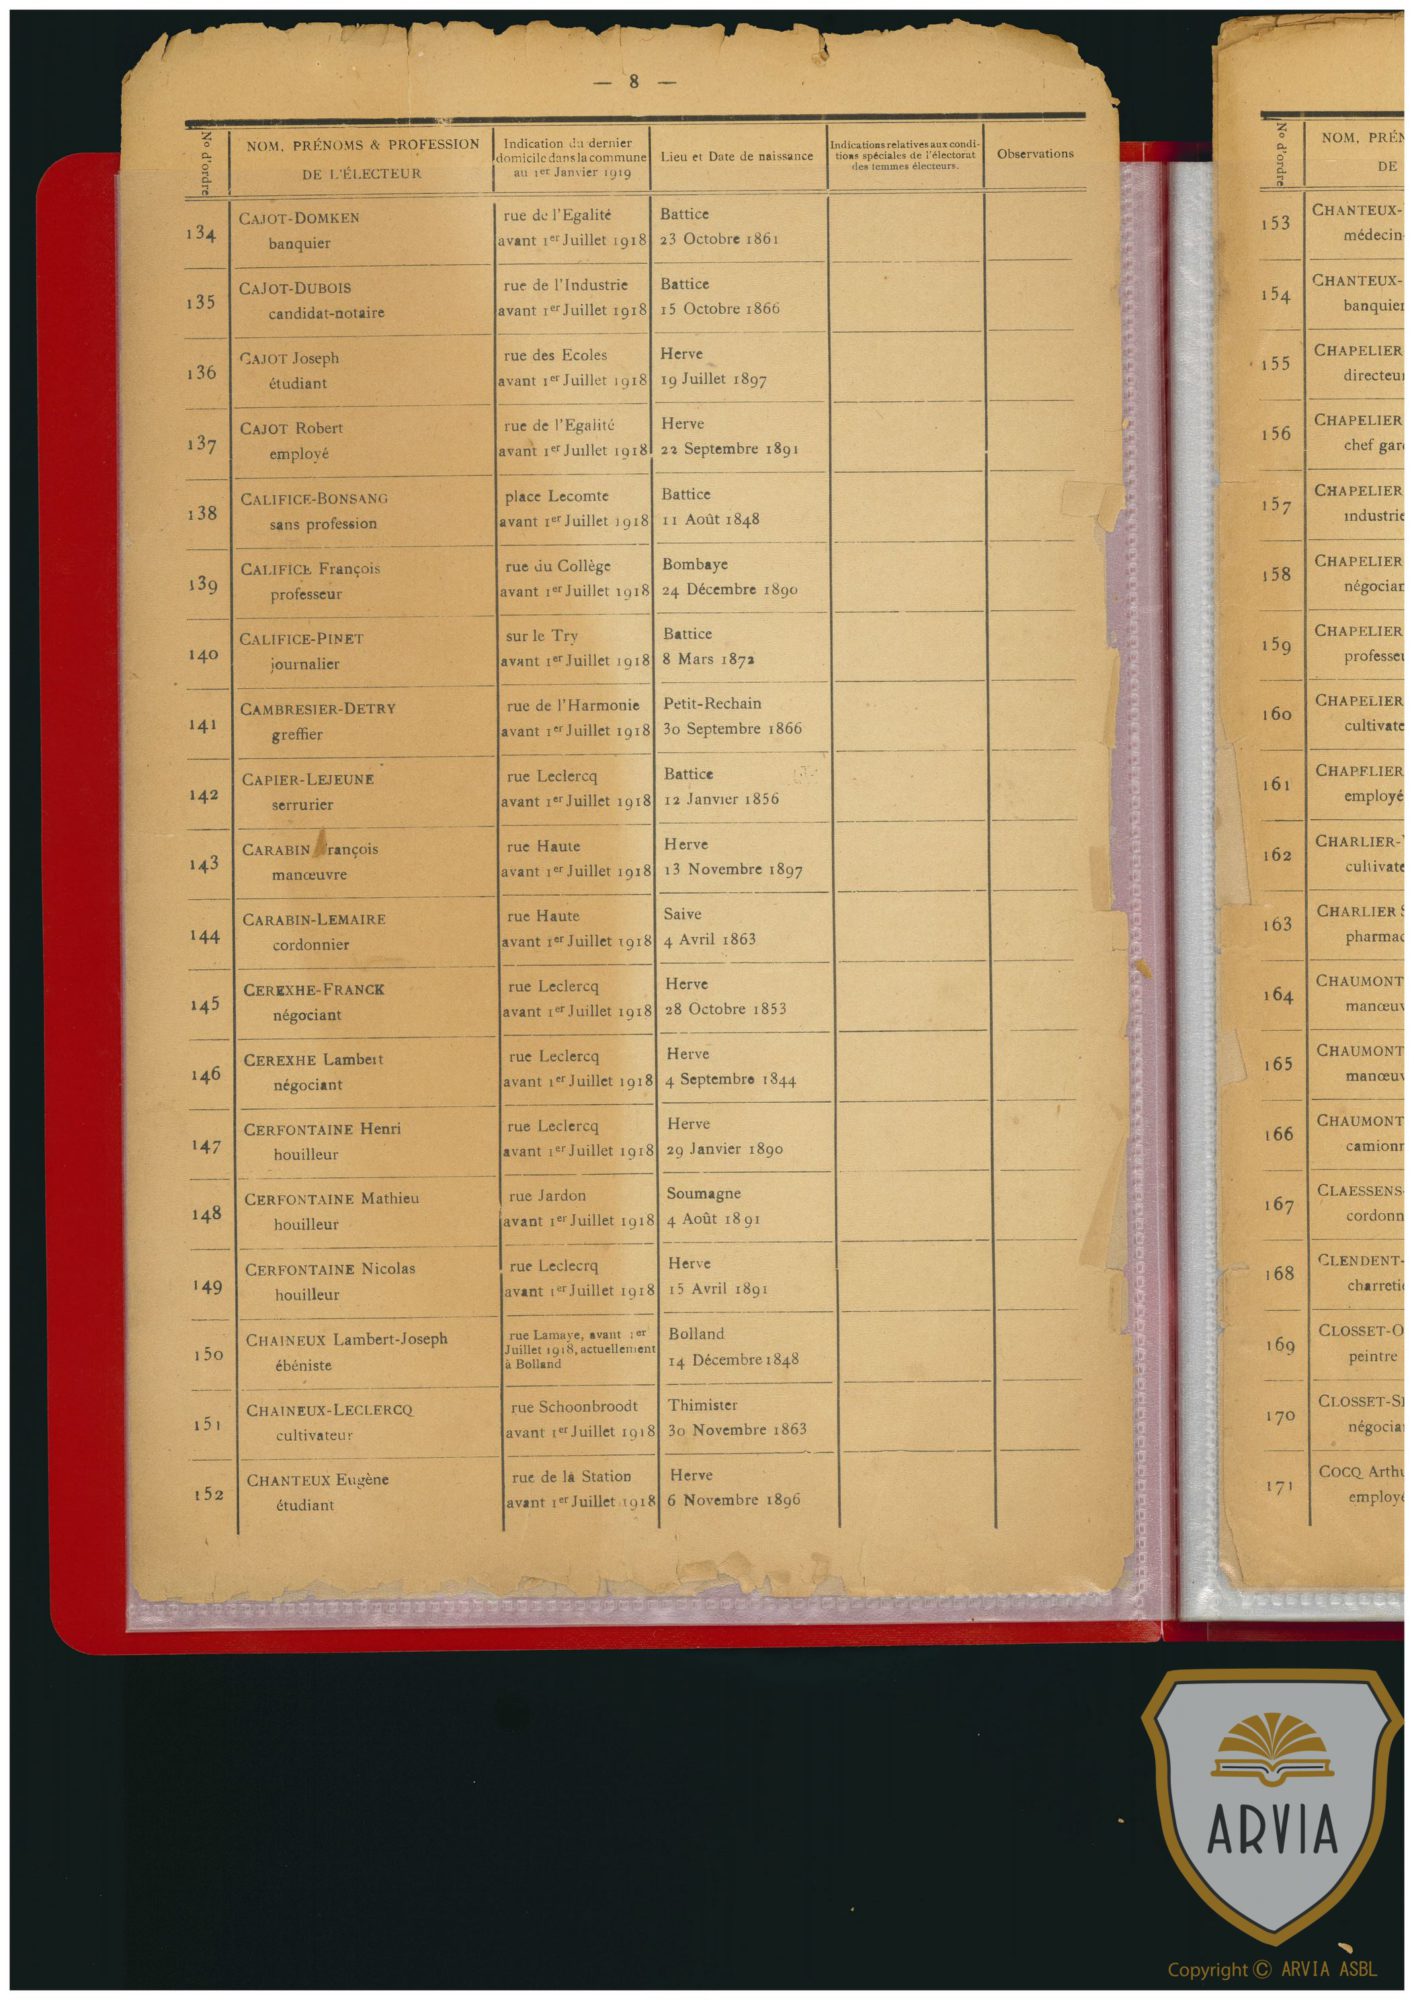 — 8 —
No d'ordre
NOM, PRÉNOMS & PROFESSION
DE L'ÉLECTEUR
Indication du dernier
domicile dans la commune
au 1er Janvier 1919
Lieu et Date de naissance
Indications relatives aux condi-
tions spéciales de l'électorat
des femmes électeurs.
Observations
134 CAJOT-DOMKEN rue de l'Egalité Battice
banquier avant 1er Juillet 1918 23 Octobre 1861
135 CAJOT-DUBOIS rue de l'Industrie Battice
candidat-notaire avant 1er Juillet 1918 15 Octobre 1866
136 CAJOT Joseph rue des Ecoles Herve
étudiant avant 1er Juillet 1918 19 Juillet 1897
137 CAJOT Robert rue de l'Egalité Herve
employé avant 1er Juillet 1918 22 Septembre 1891
138 CALIFICE-BONSANG place Lecomte Battice
sans profession avant 1er Juillet 1918 11 Août 1848
139 CALIFICE François rue du Collège Bombaye
professeur avant 1er Juillet 1918 24 Décembre 1890
140 CALIFICE-PINET sur le Try Battice
journalier avant 1er Juillet 1918 8 Mars 1872
141 CAMBRESIER-DETRY rue de l'Harmonie Petit-Rechain
greffier avant 1er Juillet 1918 30 Septembre 1866
142 CAPIER-LEJEUNE rue Leclercq Battice
serrurier avant 1er Juillet 1918 12 Janvier 1856
143 CARABIN François rue Haute Herve
manœuvre avant 1er Juillet 1918 13 Novembre 1897
144 CARABIN-LEMAIRE rue Haute Saive
cordonnier avant 1er Juillet 1918 4 Avril 1863
145 CEREXHE-FRANCK rue Leclercq Herve
négociant avant 1er Juillet 1918 28 Octobre 1853
146 CEREXHE Lambert rue Leclercq Herve
négociant avant 1er Juillet 1918 4 Septembre 1844
147 CERFONTAINE Henri rue Leclercq Herve
houilleur avant 1er Juillet 1918 29 Janvier 1890
148 CERFONTAINE Mathieu rue Jardon Soumagne
houilleur avant 1er Juillet 1918 4 Août 1891
149 CERFONTAINE Nicolas rue Leclecrq Herve
houilleur avant 1er Juillet 1918 15 Avril 1891
150 CHAINEUX Lambert-Joseph rue Lamaye, avant 1er Bolland
ébéniste Juillet 1918, actuellement 14 Décembre 1848
à Bolland
151 CHAINEUX-LECLERCQ rue Schoonbroodt Thimister
cultivateur avant 1er Juillet 1918 30 Novembre 1863
152 CHANTEUX Eugène rue de la Station Herve
étudiant avant 1er Juillet 1918 6 Novembre 1896
No d'ordre
NOM, PRÉN
DE
153 CHANTEUX-
médecin
154 CHANTEUX-
banquier
155 CHAPELIER
directeu
156 CHAPELIER
chef gar
157 CHAPELIER
industrie
158 CHAPELIER
négocian
159 CHAPELIER
professe
160 CHAPELIER
cultivate
161 CHAPELIER
employé
162 CHARLIER-
cultivate
163 CHARLIER
pharmac
164 CHAUMONT
manœuv
165 CHAUMONT
manœuv
166 CHAUMONT
camionn
167 CLAESSENS-
cordonn
168 CLENDENT-
charreti
169 CLOSSET-O
peintre
170 CLOSSET-S
négocia
171 COCQ Arthu
employé
ARVIA
Copyright © ARVIA ASBL